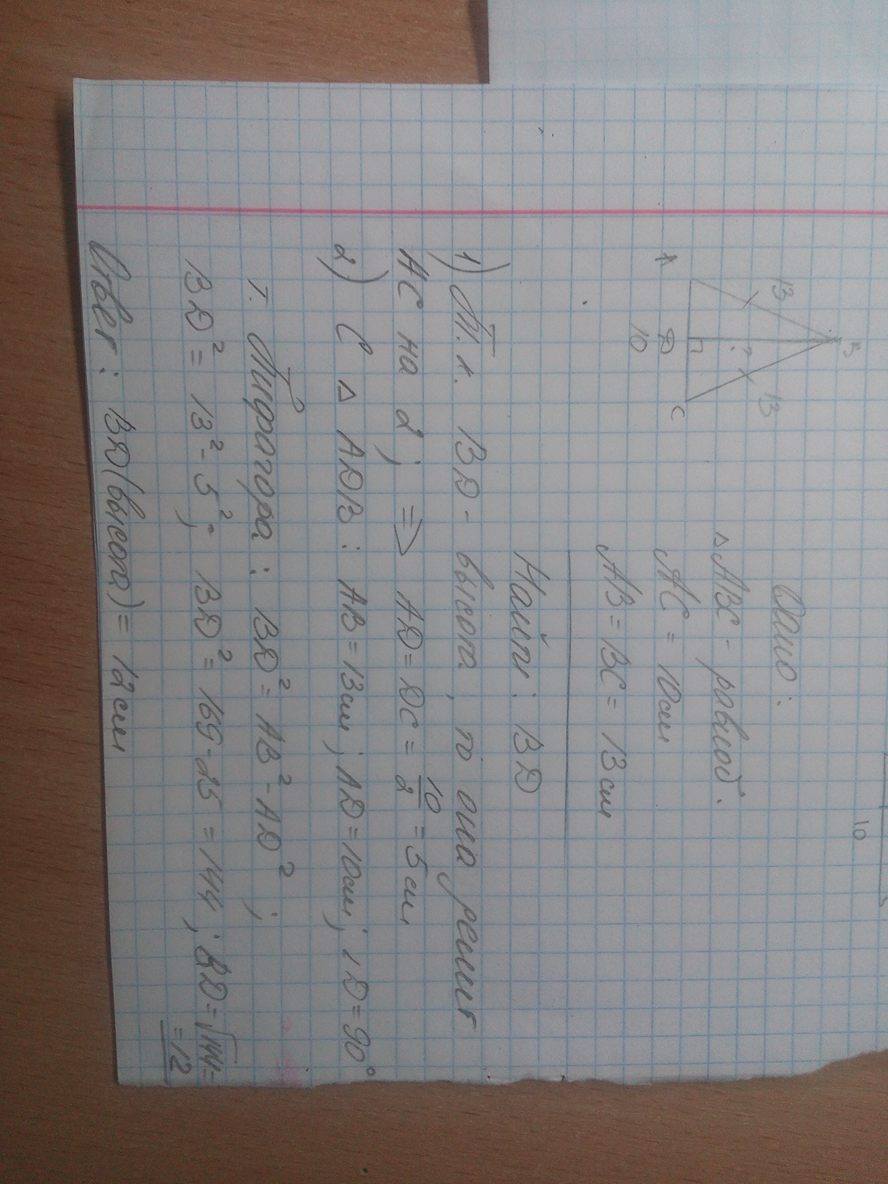 B
13
13
?
A
D
C
10
Дано:
△ABC - равноб.
AC = 10см
AB = BC = 13 см
Найти: BD
1) Т.к. BD - высота, то она делит
AC на 2; => AD = DC = 10/2 = 5 см
2) С △ ADB: AB = 13см; AD = 10см; ∠D = 90°
т. Пифагора: BD² = AB² - AD²;
BD² = 13² - 5²; BD² = 169 - 25 = 144; BD = √144 =
= 12
Ответ: BD (высота) = 12см
10